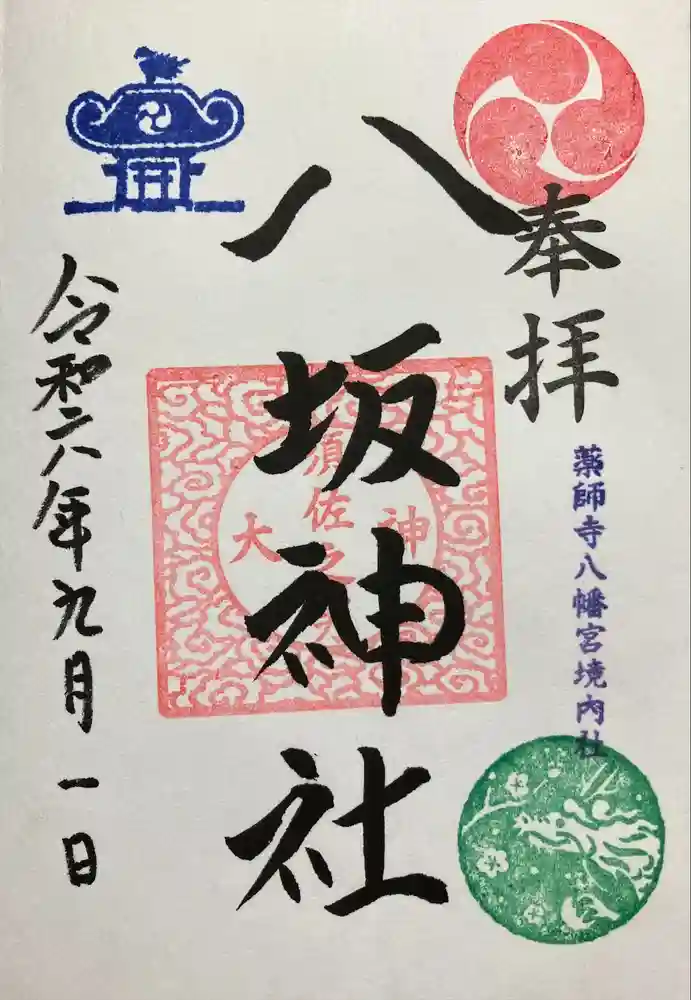 奉拝
薬師寺八幡宮境内社
八坂神社
神
須佐之
大
令和六年九月一日